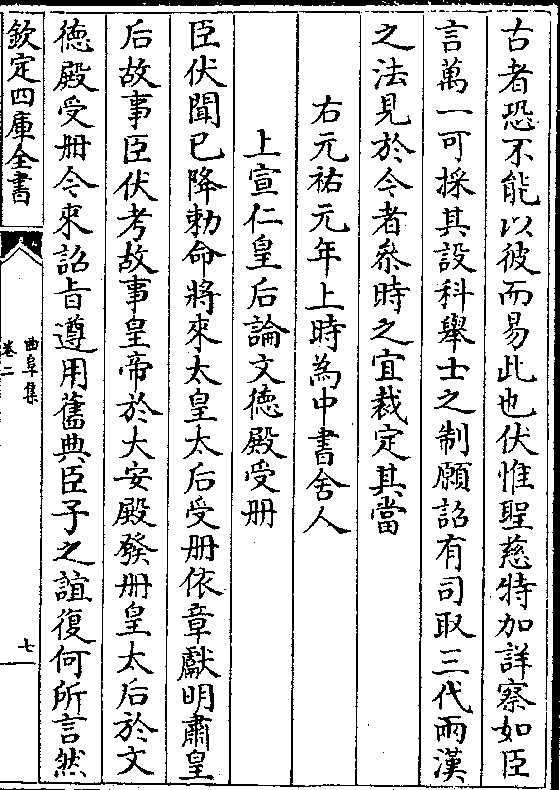 古者恐不能以彼而易此也伏惟聖慈特加詳察如臣
言萬一可採其設科舉士之制願詔有司取三代兩漢
之法見於今者叅時之宜裁定其當
右元祐元年上時為中書舍人
上宣仁皇后論文德殿受册
臣伏聞已降勅命將來太皇太后受册依章獻明肅皇
后故事臣伏考故事皇帝於大安殿發册皇太后於文
德殿受册今來詔旨遵用舊典臣子之誼復何所言然
欽定四庫全書
曲阜集
卷二
七